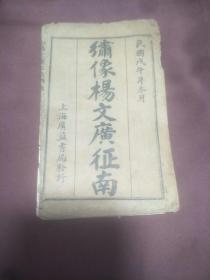 民國戊午年冬月
繡像楊文廣征南
上海廣益書局發行